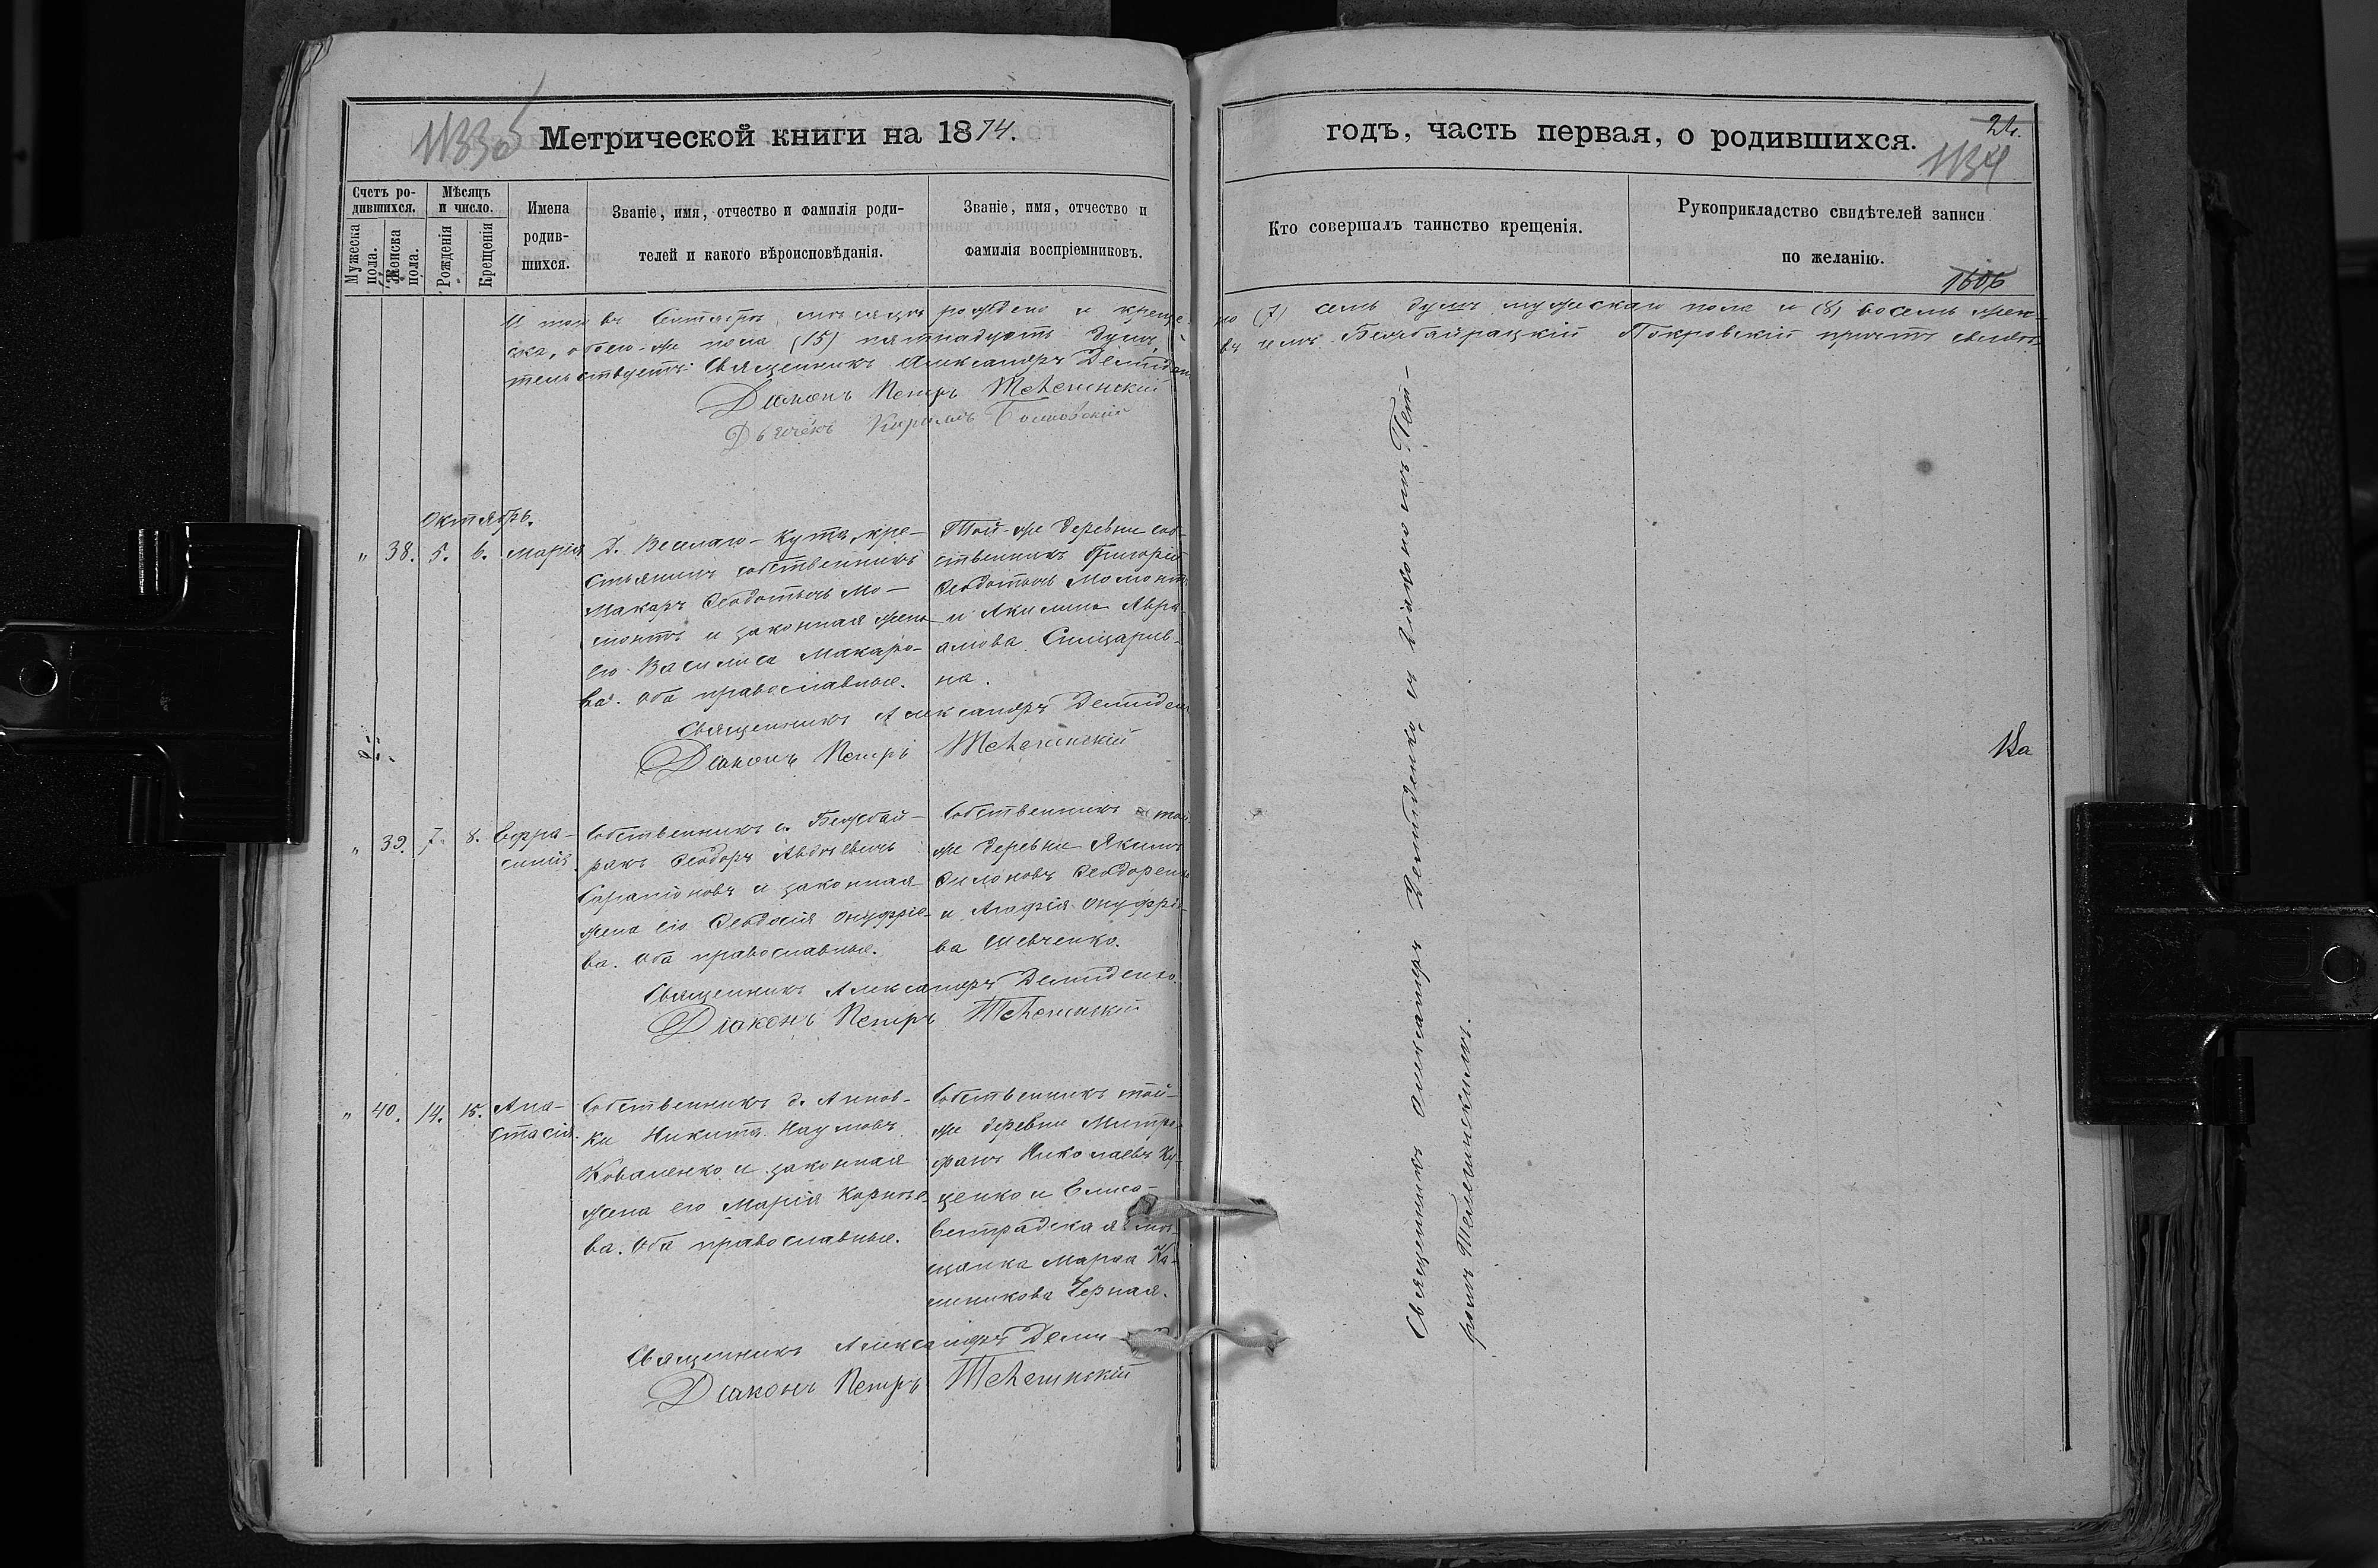 1133об
Метрической книги на 1874.
Счетъ ро-
дившихся.
Мѣсяцъ
и число.
Мужеска
пола.
Женска
пола.
Рожденія
Крещенія
Имена
родив-
шихся.
Званіе, имя, отчество и фамилія роди-
телей и какого вѣроисповѣданія.
Званіе, имя, отчество и
фамилія воспріемниковъ.
въ Сентябрѣ мѣсяцѣ рождено и креще-
ска, обоего-же пола (15) пятнадцать душъ,
тельствуетъ: Священникъ Александръ Демиден
Діаконъ Петръ Телешинскій
Дьячекъ Кирилъ
Октябрь.
" 38. 5. 6. Марія
д. Веселаго-Кута, кре-
стьянинъ собственникъ
Макаръ Ѳеодотовъ Мо-
монтъ и законная жена
его Василиса Макаро-
ва. Оба православные.
Той-же деревни соб-
ственникъ Григорій
Ѳеодотовъ Момонтъ
и Акилина Авра-
амова
на.
Священникъ Александръ Демиденк
Діаконъ Петръ Телешинскій
" 39. 7. 8. Евфра-
синія
Собственникъ с. Бежбай-
ракъ Ѳеодоръ Авдіевичъ
Сарапіоновъ и законная
жена его Ѳеодосія Онуфріе-
ва. Оба православные.
Собственникъ той
же деревни Якимъ
Филоновъ Ѳеодоренко
и Агафія Онуфріе-
ва Шевченко.
Священникъ Александръ Демиденко.
Діаконъ Петръ Телешинскій
" 40. 14. 15. Ана-
стасія.
Собственникъ д. Аннов-
ки Никита Наумовъ
Коваленко и законная
жена его Марія Корніе-
ва. Оба православные.
Собственникъ той-
же деревни Митро-
фанъ Николаевъ Ку-
ценко и Елиса-
ветградская мѣ-
щанка Марѳа Ка-
линикова Черная.
Священникъ Александръ Деми
Діаконъ Петръ Телешинскій
годъ, часть первая, о родившихся.
1134
Кто совершалъ таинство крещенія.
Рукоприкладство свидѣтелей записи
по желанію.
1606
но (7) семь душъ мужескаго пола и (8) восемь жен-
въ чемъ Бежбайрацкій Покровскій причтъ свидѣ-
Священникъ Александръ Демиденко съ діакономъ Пет-
ромъ Телешинскимъ.